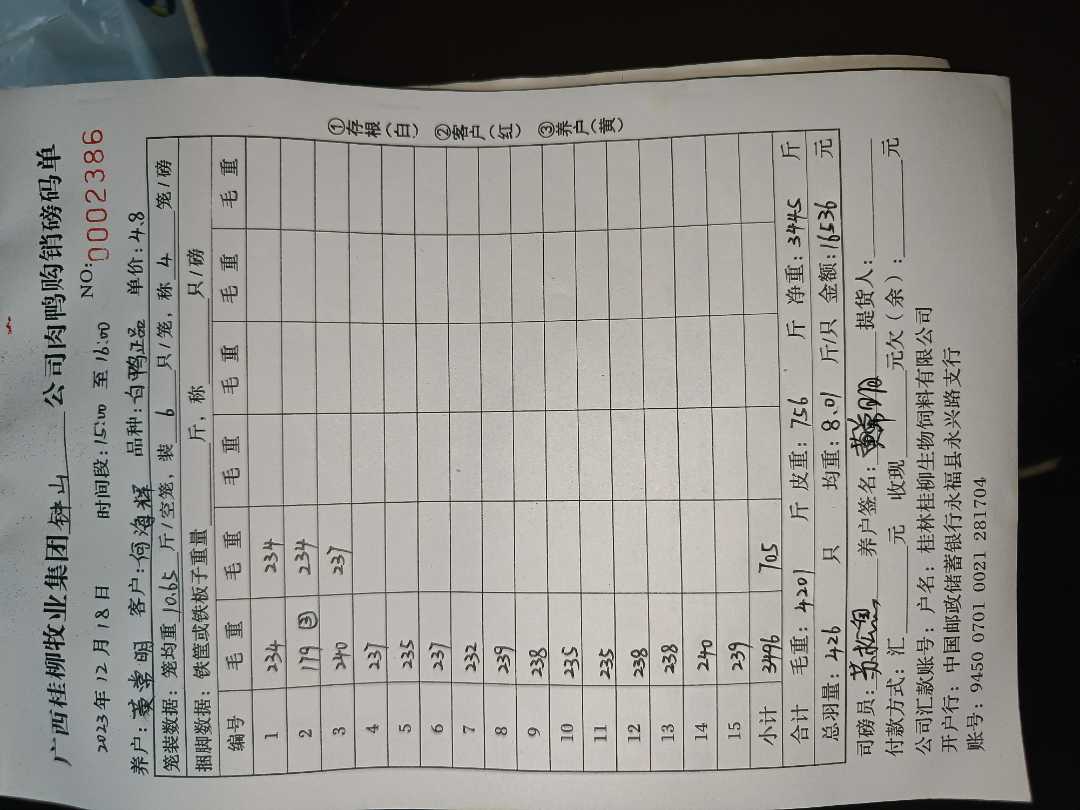 广西桂柳牧业集团钟山公司肉鸭购销磅码单
NO:0002386
2023年12月18日 时间段:15:00 至 16:00
养户:黄常明 客户:何海辉 品种:白鸭正品 单价:4.8
笼装数据:笼均重10.65斤/空笼,装6只/笼,称4笼/磅
捆脚数据:铁筐或铁板子重量 斤,称 只/磅
编号 毛重 毛重 毛重 毛重 毛重 毛重
1 234 234
2 179 ③ 234
3 240 237
4 237
5 235
6 237
7 232
8 239
9 238
10 235
11 235
12 238
13 238
14 240
15 239
小计 3496 705
合计 毛重:4201 斤 皮重:756 斤 净重:3445 斤
总羽量:426 只 均重:8.01 斤/只 金额:16536 元
司磅员: 养户签名:黄常明 提货人:
付款方式:汇 元 收现 元欠(余): 元
公司汇款账号:户名:桂林桂柳生物饲料有限公司
开户行:中国邮政储蓄银行永福县永兴路支行
账号:9450 0701 0021 281704
①存根(白) ②客户(红) ③养户(黄)